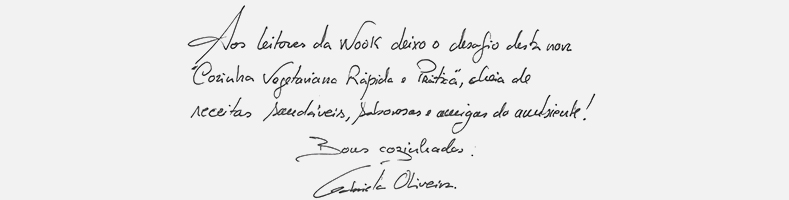 Aos leitores da Wook deixo o desafio desta nova
"Cozinha Vegetariana Rápida e Prática", cheia de
receitas saudáveis, saborosas e amigas do ambiente!
Bons cozinhados.
Gabriela Oliveira.